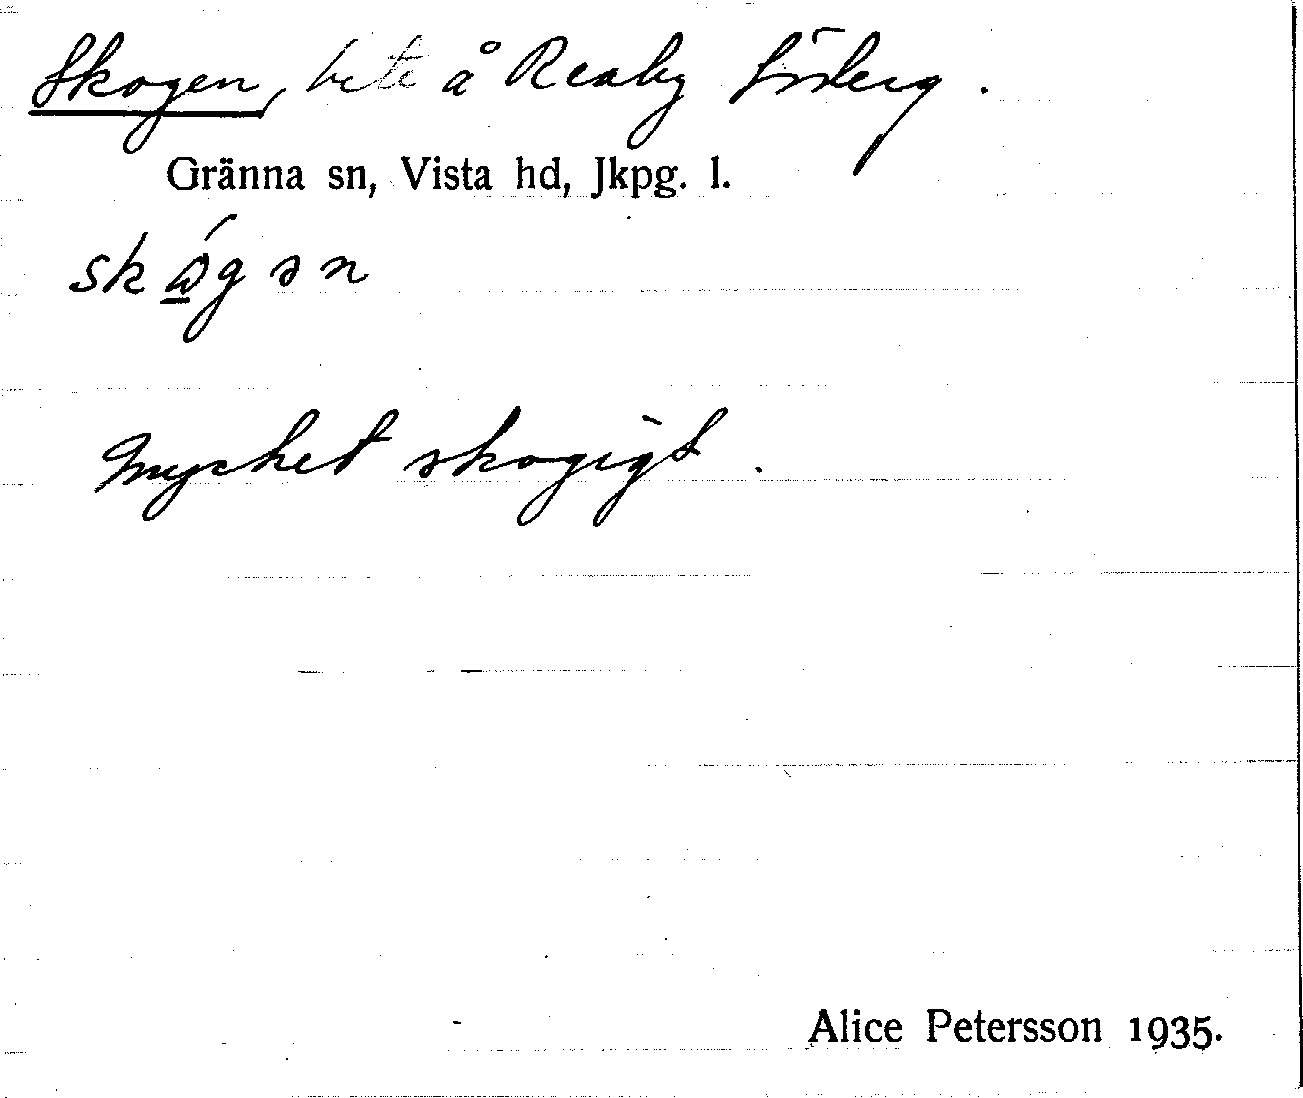 Skogen, bete å Reaby Sörberg.
Gränna sn, Vista hd, Jkpg. l.
skǿgən
Mycket skogigt.
Alice Petersson 1935.